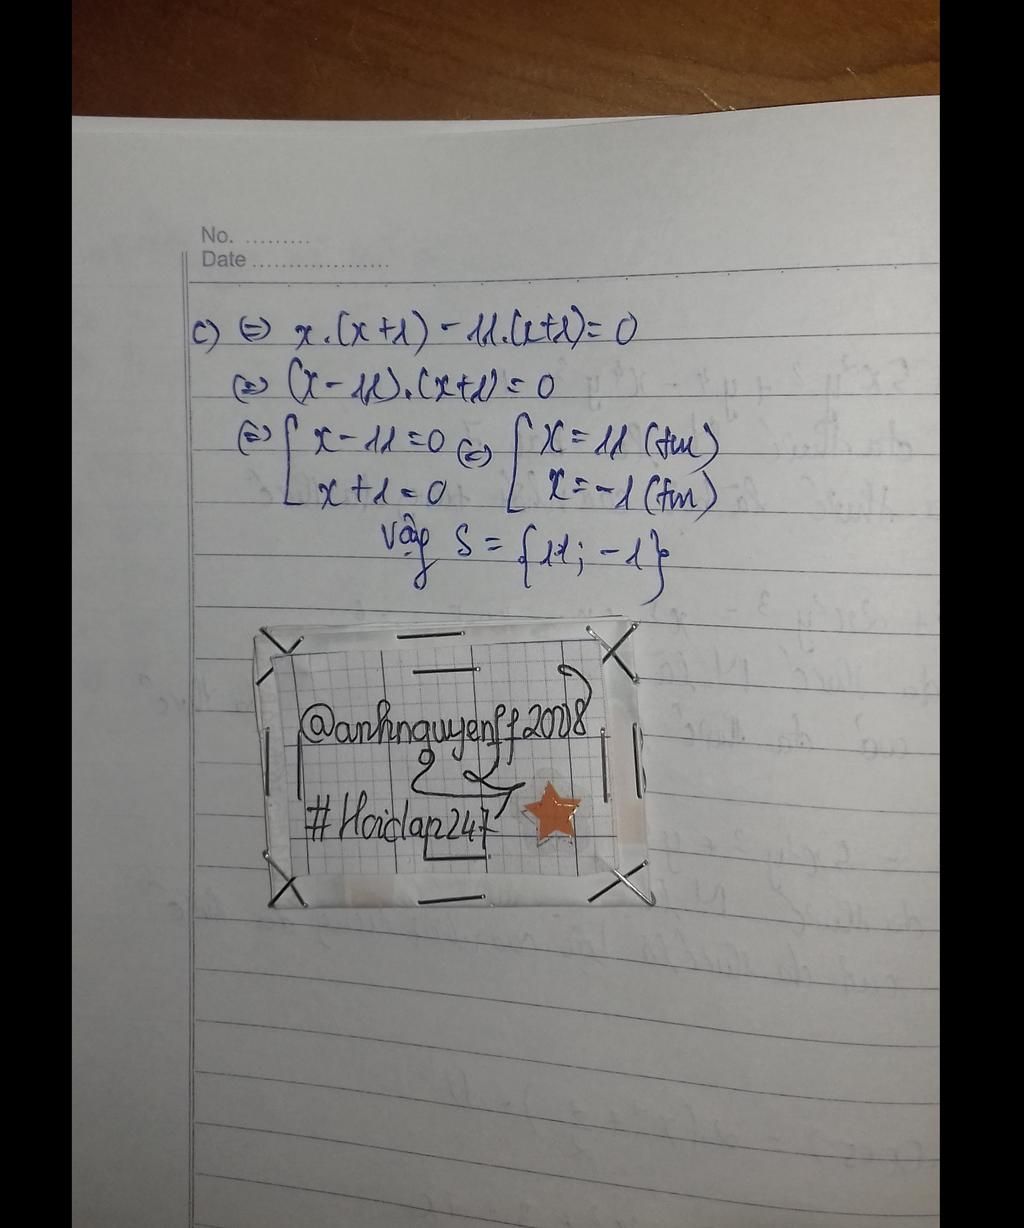 No. .........
Date ...................
c) (=) x.(x+1) - 11.(x+1)= 0
(=) (x - 11).(x+1)= 0
(=) [ x - 11 = 0 (=) [ x = 11 (tm)
x + 1 = 0 x = -1 (tm)
Vậy S = {11; -1}
@anhnguyenff2008
#Hoidap247